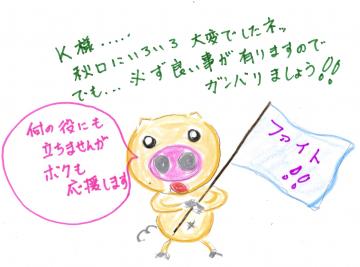 K様……
秋口にいろいろ 大変でしたネッ
でも… 必ず良い事が有りますので
ガンバリましょう!!
何の役にも
立ちませんが
ボクも
応援します
ファイト
!!